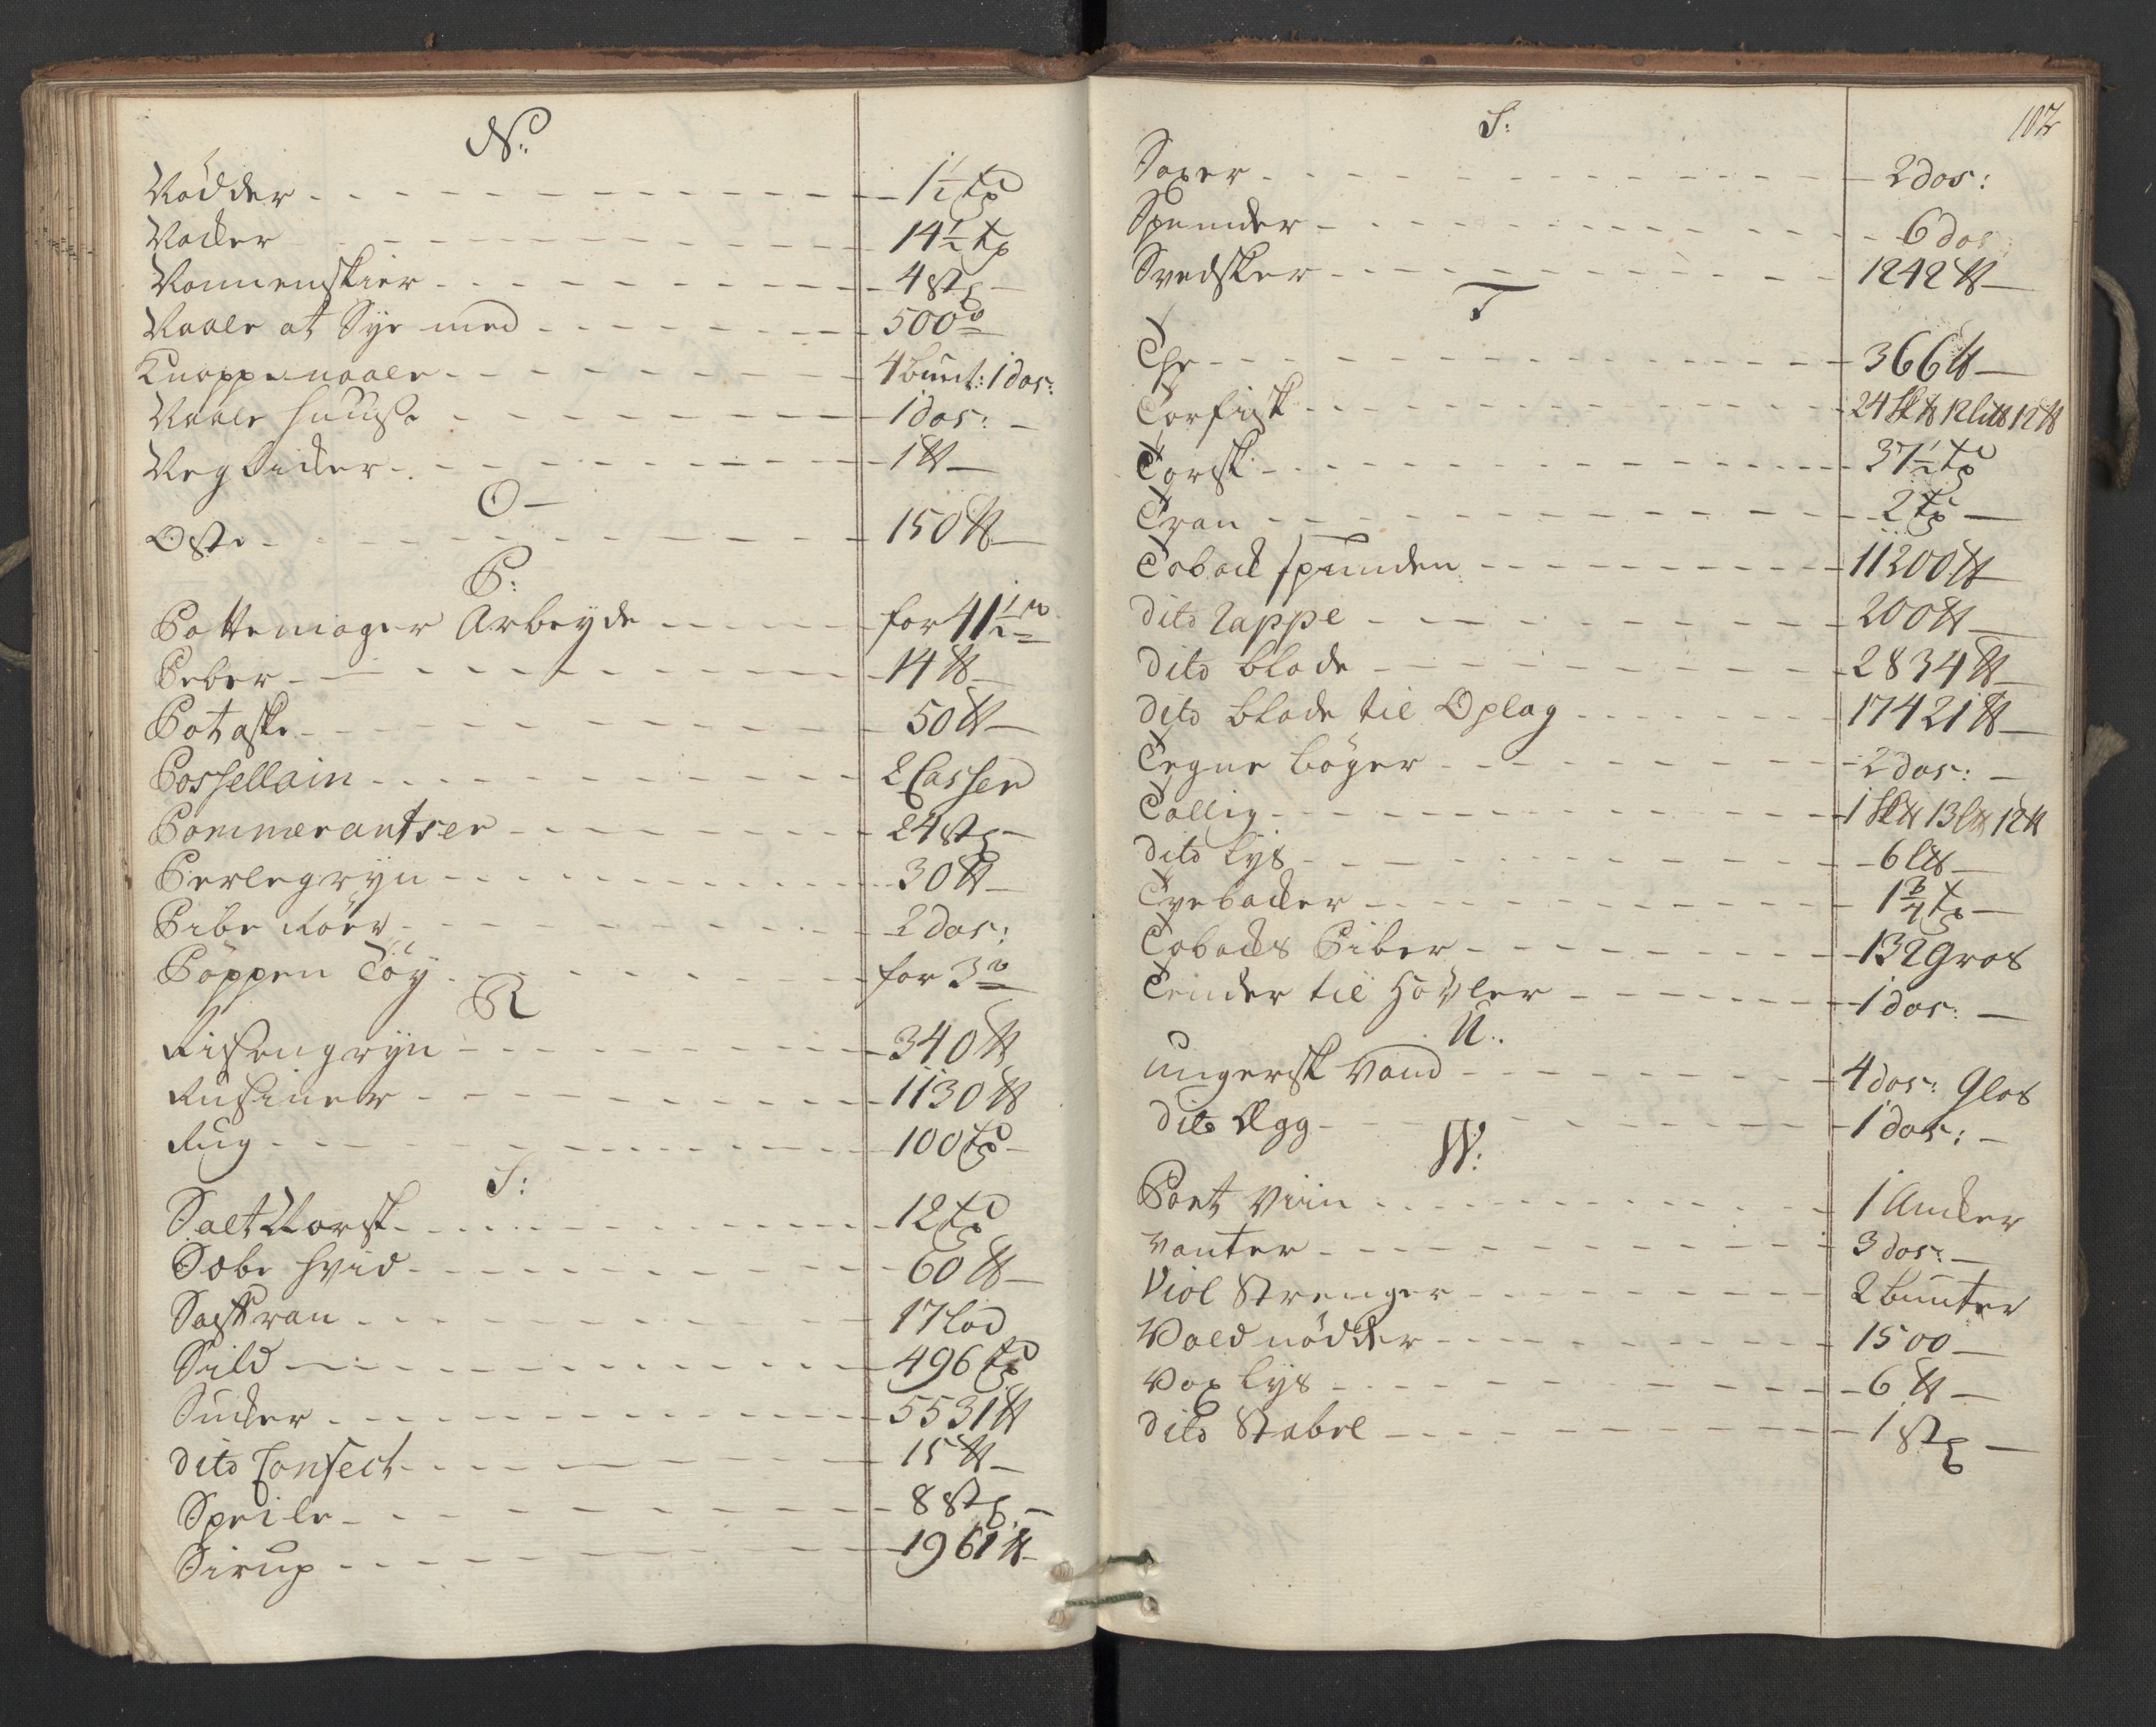 N:
Nödder 1½ tr
Nacker 14½ tr
Nonnenskier 4 str
Naale at Sye med 500
Knappenaale 4 bunt: 1 dos:
Naale huuse 1 dos:
Neglicker 1 ℔
O
Oste 150 ℔
P:
Pottemager Arbeyde for 41½
Peber 14 ℔
Potaske 50 ℔
Possellain 2 Casser
Pommerantser 24 st
Perlegryn 30 ℔
Pibe Röer 2 dos:
Poppen Töy for 3
R
Rissengryn 340 ℔
Rusiner 1130 ℔
Rug 100 tr
S:
Salt Torsk 12 tr
Sobe hvid 60 ℔
Saffran 17 lod
Sild 496 tr
Sucker 5531 ℔
dito Confect 15 ℔
Speile 8 st
Sirup 1961 ℔
102
S:
Saxer 2 dos:
Spender 6 dos
Svedsker 1242 ℔
T
The 366 ℔
Torfisk 24 sk℔ 12 li℔ 12 ℔
Torsk 37½ tr
Tran 2 tr
Toback spunden 11200 ℔
dito Rappe 200 ℔
dito blade 2834 ℔
dito blade til Oplag 17421 ℔
Tegne böger 2 dos:
Tallig 1 sk℔ 13 l℔ 12 ℔
dito lys 6 l℔
Tvebacker 1¾ tr
Tobacks Piber 132 Gros
Tender til Höuler 1 dos:
U.
ungersk Vand 4 dos: Glas
dito Egg 1 dos:
W:
Port Viin 1 Ancker
Vanter 3 dos:
Viol Strenger 2 bunter
Valdnödder 1500
Vox lys 6 ℔
dito Stabel 1 st